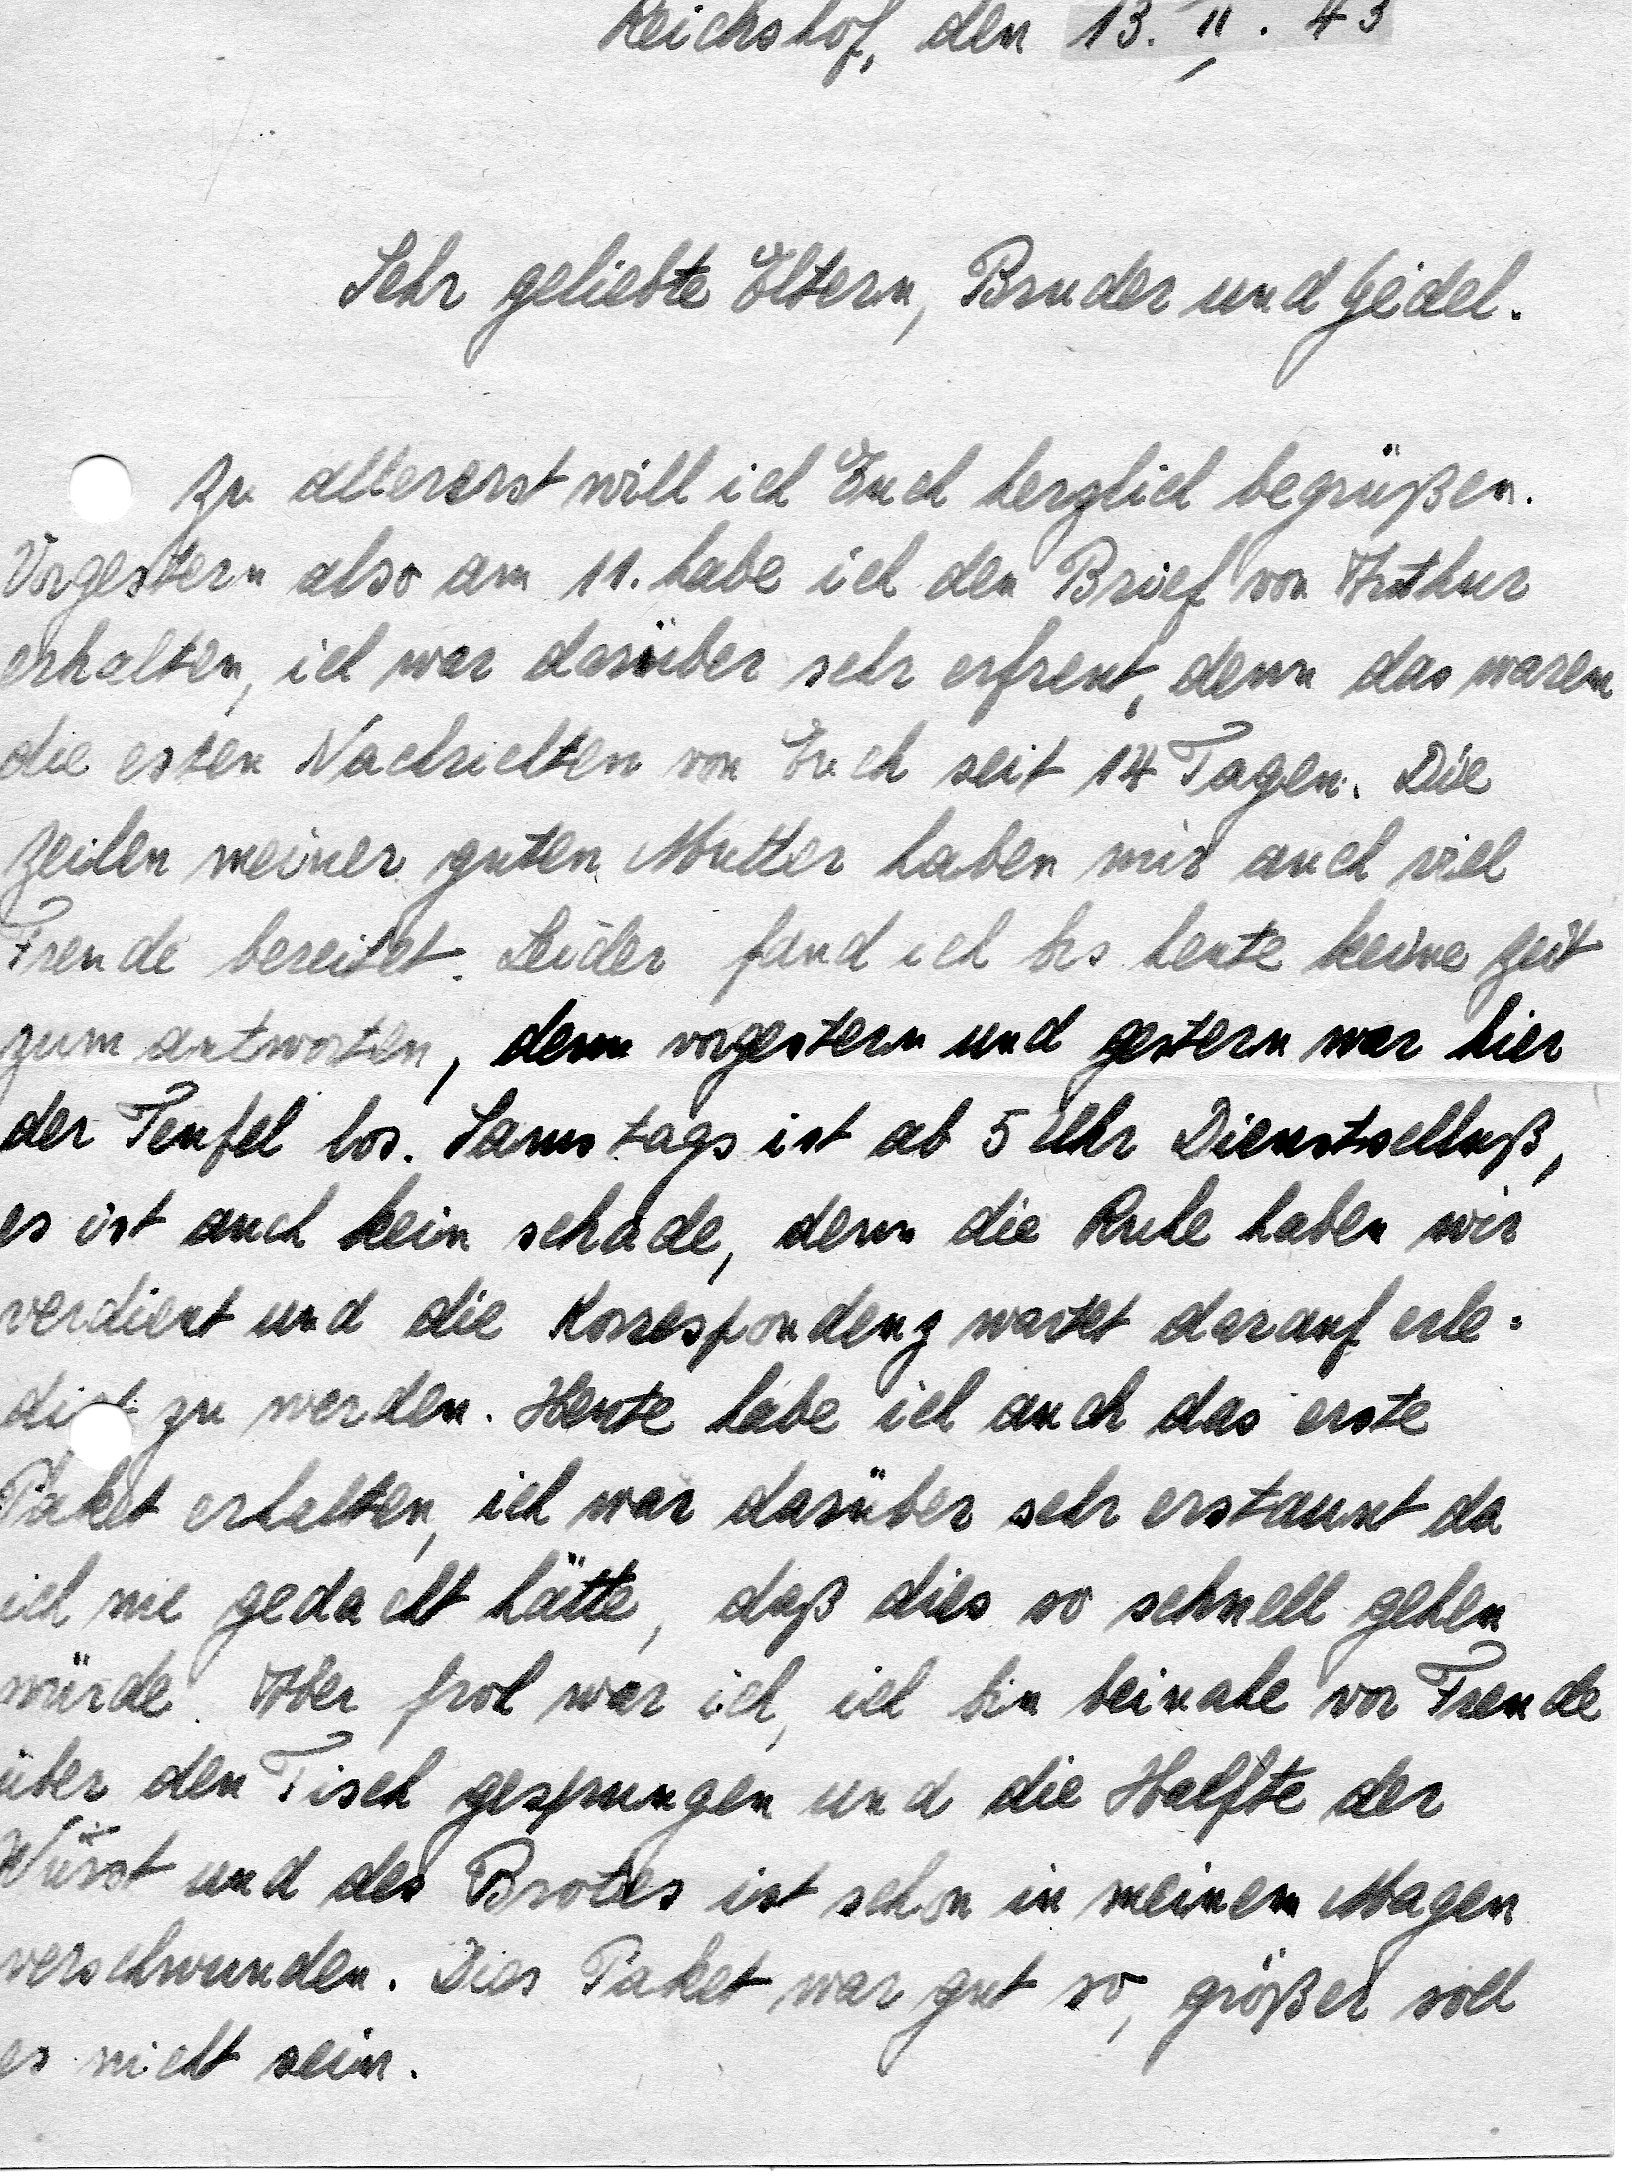 Reichshof, den 13. II. 43
Sehr geliebte Eltern, Bruder und Geidel.
Zu allererst will ich Euch herzlich begrüßen.
Vorgestern also am 11. habe ich den Brief von Arthur
erhalten, ich war darüber sehr erfreut, denn das waren
die esten Nachrichten von Euch seit 14 Tagen. Die
Zeilen meiner guten Mutter haben mir auch viel
Freude bereitet. Leider fand ich bis heute keine Zeit
zum antworten, denn vorgestern und gestern war hier
der Teufel los. Samstags ist ab 5 Uhr Dienstschluß,
es ist auch kein schade, denn die Ruhe haben wir
verdient und die Korrespondenz wartet darauf erle-
digt zu werden. Heute habe ich auch das erste
Paket erhalten, ich war darüber sehr erstaunt da
ich nie gedacht hätte, daß dies so schnell gehen
würde. Aber froh war ich, ich bin beinahe vor Freude
über den Tisch gesprungen und die Halfte der
Würst und des Brotes ist schon in meinem Magen
verschwunden. Dies Paket war gut so, größer soll
es nicht sein.